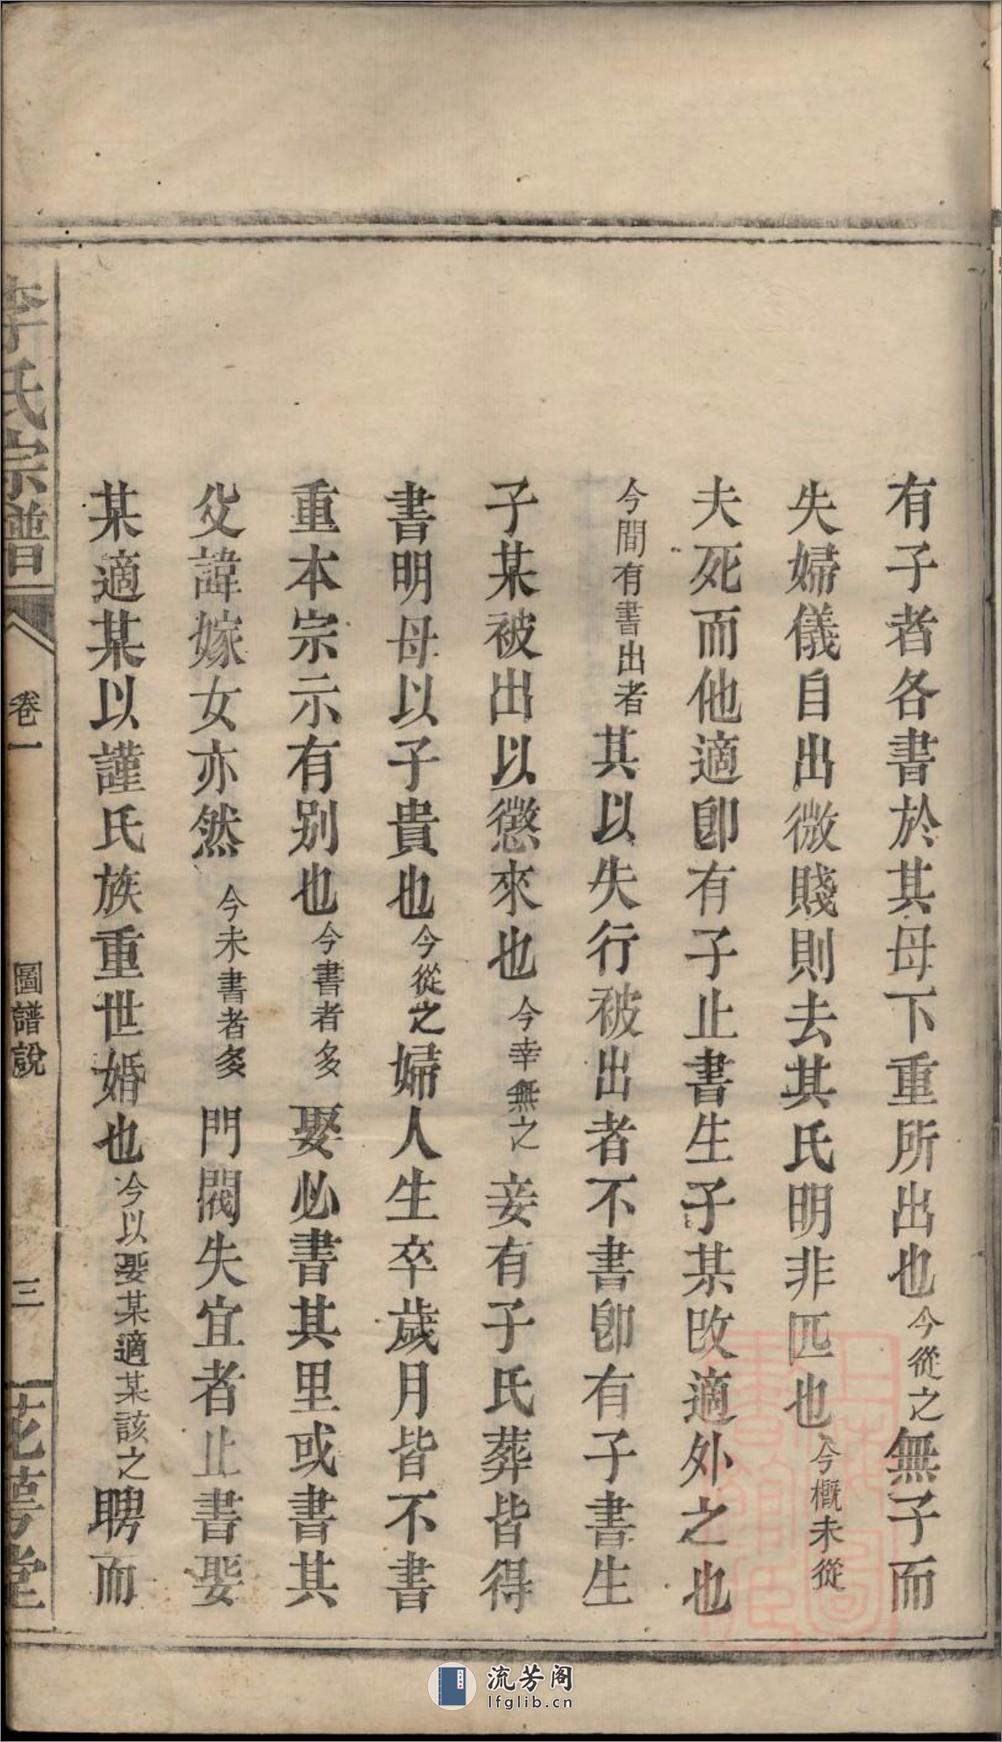 有子者各書於其母下重所出也今從之無子而
失婦儀自出微賤則去其氏明非匹也今概未從
夫死而他適卽有子止書生子某改適外之也
今間有書出者其以失行被出者不書卽有子書生
子某被出以懲來也今幸無之妾有子氏葬皆得
書明母以子貴也今從之婦人生卒歲月皆不書
重本宗示有别也今書者多娶必書其里或書其
父諱嫁女亦然今未書者多門閥失宜者止書娶
某適某以謹氏族重世婚也今以娶某適某該之聘而
李氏宗譜
卷一
圖譜說
三
花萼堂
流芳阁
lfglib.cn